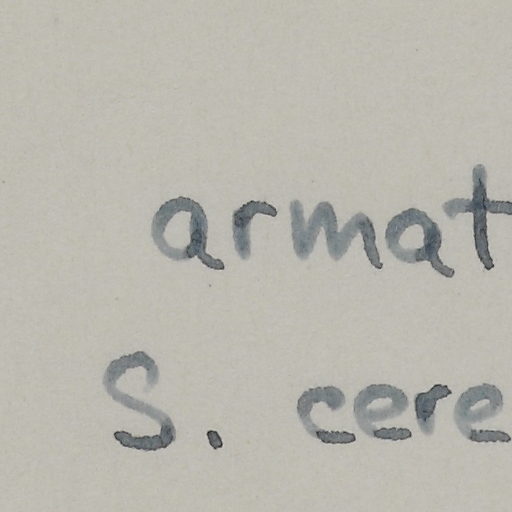 armat
S. cere